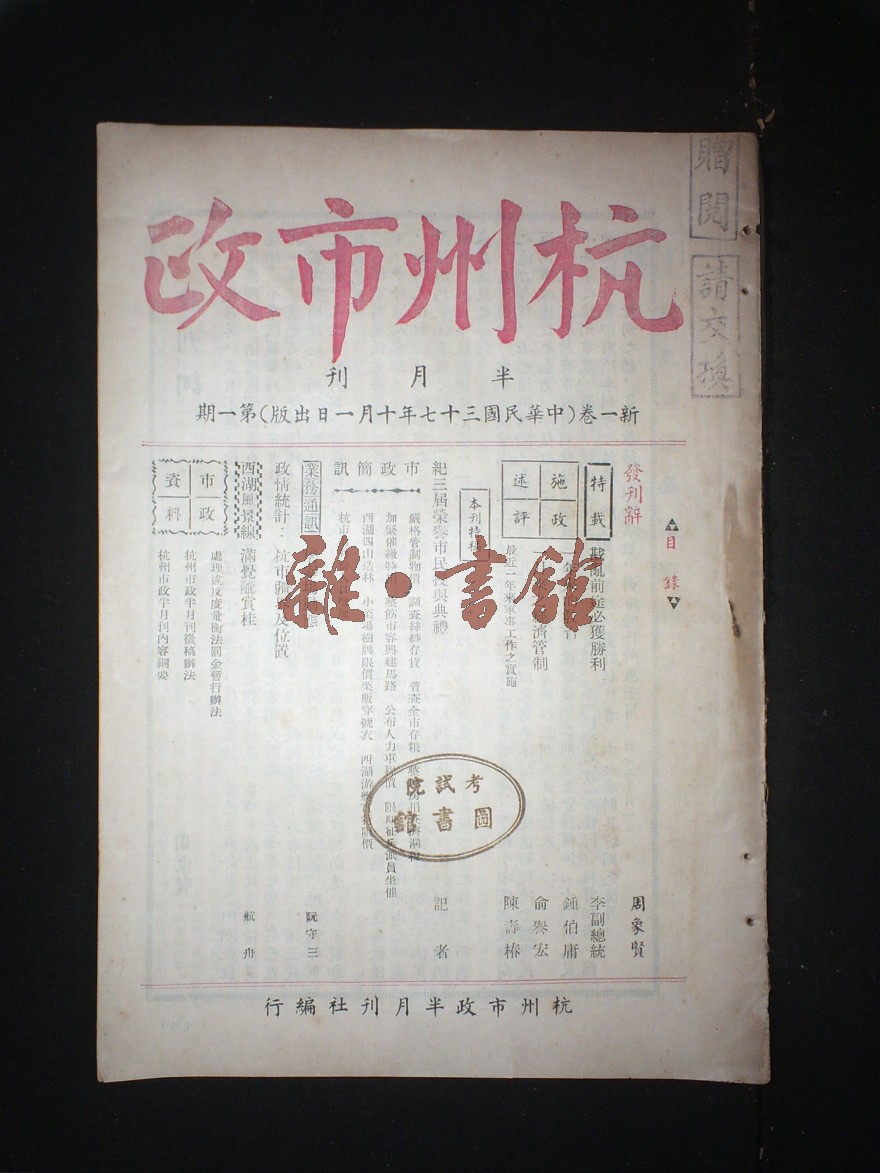 贈閱
請交換
杭州市政
半月刊
新一卷(中華民國三十七年十月一日出版)第一期
目錄
發刊辭 周象賢
特載
戡亂前途必獲勝利 李副總統
施政述評
鍾伯庸
經濟管制 俞譽宏
最近一年來軍事工作之實施 陳壽椿
本刊特稿
紀三屆榮譽市民授與典禮 記者
市政簡訊
嚴格管制物價 調查絲綢存貨 普查全市存糧
加緊催繳特捐 整飭市容興建馬路 公布人力車 派員坐催
西湖四山造林 小菜場樹牌限價菜販穿號衣 西湖游
業務通訊
阮守三
政情統計:杭市疆界及位置
西湖風景線
滿覺隴賞桂 航舟
市政資料
處理違反度量衡法罰金暫行辦法
杭州市政半月刊徵稿辦法
杭州市政半月刊內容綱要
雜·書館
考試院
圖書館
杭州市政半月刊社編行